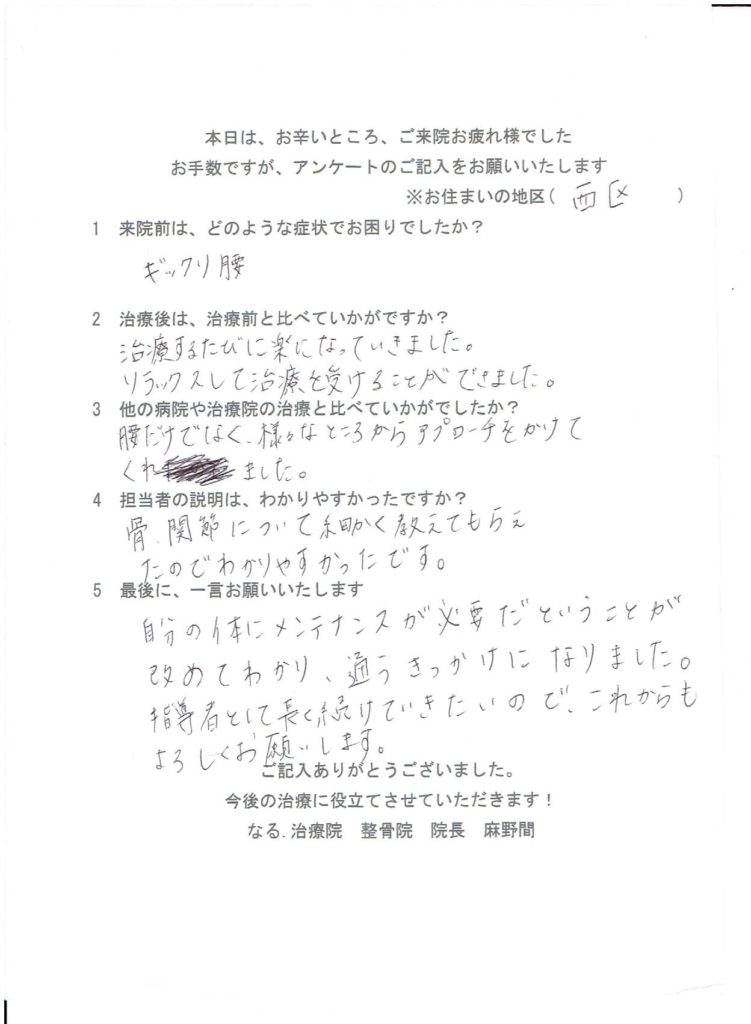 本日は、お辛いところ、ご来院お疲れ様でした
お手数ですが、アンケートのご記入をお願いいたします
※お住まいの地区( 西区 )
1 来院前は、どのような症状でお困りでしたか?
ギックリ腰
2 治療後は、治療前と比べていかがですか?
治療するたびに楽になっていきました。
リラックスして治療を受けることができました。
3 他の病院や治療院の治療と比べていかがでしたか?
腰だけでなく、様々なところからアプローチをかけて
くれました。
4 担当者の説明は、わかりやすかったですか?
骨、関節について細かく教えてもらえ
たのでわかりやすかったです。
5 最後に、一言お願いいたします
自分の体にメンテナンスが必要だということが
改めてわかり、通うきっかけになりました。
指導者として長く続けていきたいので、これからも
よろしくお願いします。
ご記入ありがとうございました。
今後の治療に役立てさせていただきます!
なる.治療院 整骨院 院長 麻野間